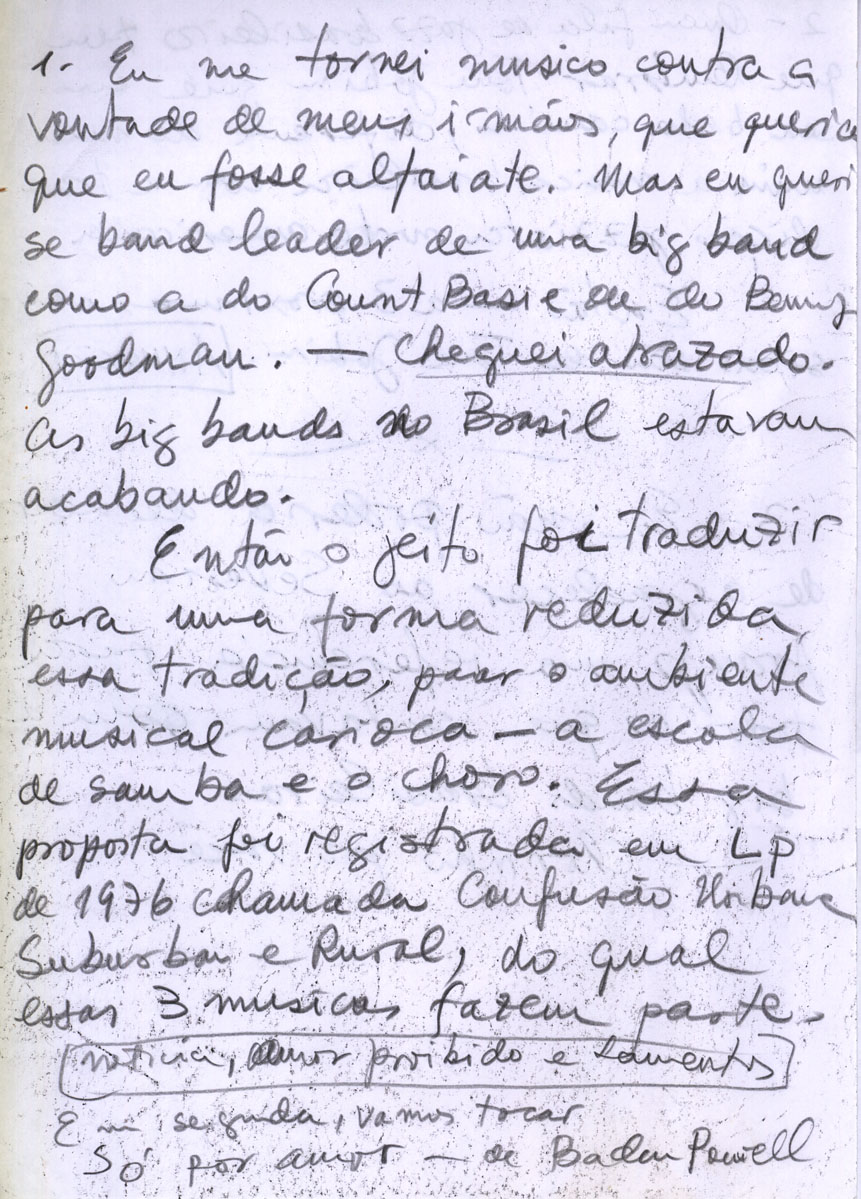 1. Eu me tornei musico contra a
vontade de meus irmãos, que queria
que eu fosse alfaiate. Mas eu queri
se band leader de uma big band
como a do Count Basie ou do Benny
Goodman. — Cheguei atrazado.
As big bands no Brasil estavam
acabando.
Então o jeito foi traduzir
para uma forma reduzida
essa tradição, paar o ambiente
musical carioca — a escola
de samba e o choro. Essa
proposta foi registrada em LP
de 1976 chamada Confusão Urbana
Suburban e Rural, do qual
essas 3 musicas fazem parte.
noticia, Amor proibido e Lamentos
Em seguida, vamos tocar
Só por amor — de Baden Powell